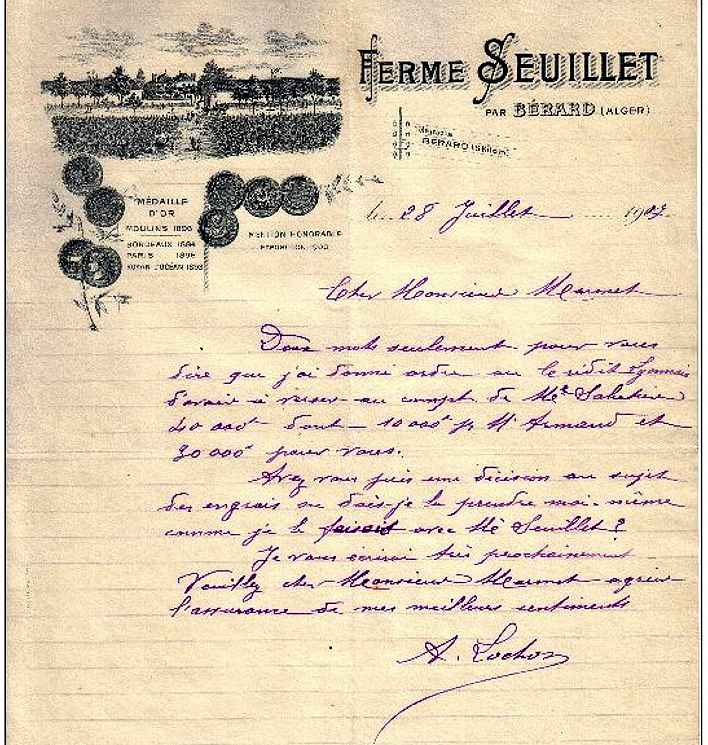 FERME SEUILLET
PAR BÉRARD (ALGER)
BÉRARD
MÉDAILLE
D'OR
MOULINS
BORDEAUX
PARIS
MENTION HONORABLE
28 Juillet 190
Cher Monsieur Marmet
Deux mots seulement pour vous
dire que j'ai donné ordre au Crédit Lyonnais
d'avoir à verser au compte de Me
40 000f dont 10 000f pr Mr Armand et
30 000f pour vous.
Avez vous pris une décision au sujet
des engrais ou dois-je la prendre moi-même
comme je le faisais avec Mr Seuillet?
Je vous écrirai très prochainement
Veuillez cher Monsieur Marmet agréer
l'assurance de mes meilleurs sentiments
A. Lochon